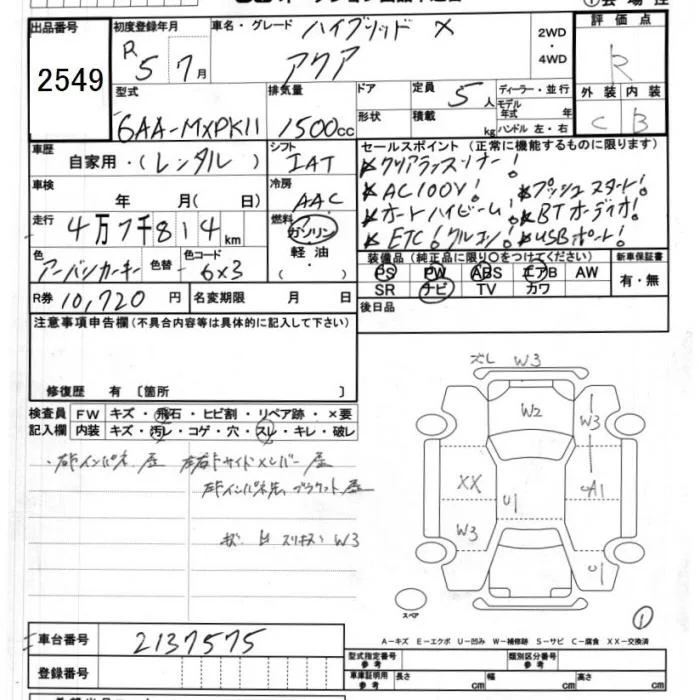 出品番号 初度登録年月 車名・グレード ハイブリッド X 2WD・4WD 評価点
2549 R5 7月 アクア R
型式 排気量 ドア 定員 5人 ディーラー・並行 外装 内装
6AA-MXPK11 1500cc 形状 積載 kg モデル年式 年 ハンドル 左・右 C B
車歴 自家用・(レンタル) シフト IAT セールスポイント (正常に機能するものに限ります)
クリアランスソナー!
車検 年 月(日) 冷房 AAC AC100V! プッシュスタート!
オートハイビーム! BTオーディオ!
走行 4万7千814km 燃料 ガソリン・軽油・( ) ETC! クルコン! USBポート!
色 アーバンカーキ 色替 色コード 6x3 装備品 (純正品に限り〇をつけてください) 新車保証書
PS PW ABS エアB AW 有・無
SR ナビ TV カワ
R券 10,720円 名変期限 月 日 後日品
注意事項申告欄(不具合内容等は具体的に記入して下さい)
修復歴 有 〔箇所 〕
検査員 FW キズ・飛石・ヒビ割・リペア跡・×要
記入欄 内装 キズ・汚レ・コゲ・穴・スレ・キレ・破レ
ズレ W3
W2 W3
XX U1 A1
W3 U1
スペア
①
A-キズ E-エクボ U-凹み W-補修跡 S-サビ C-腐食 XX-交換済
車台番号 2137575 型式指定番号 参考 類別区分番号 参考
登録番号 車庫証明用 参考 長さ cm 幅 cm 高さ cm